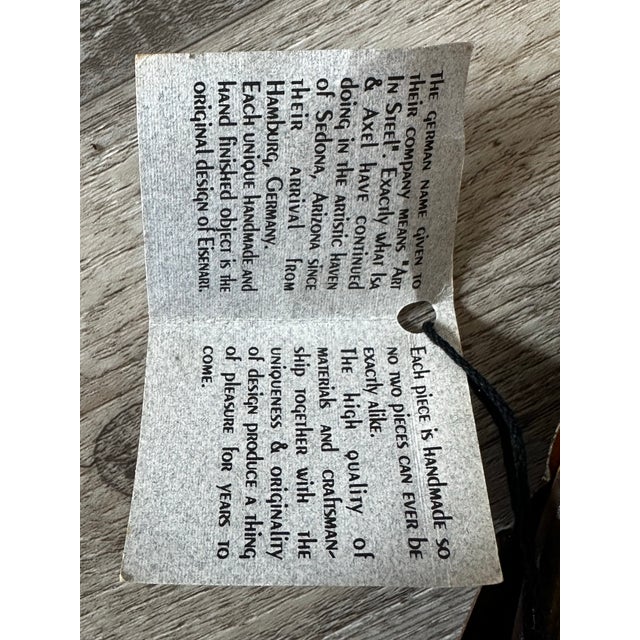 The german name given to
their company means, "Art
In Steel". Exactly what Isa
& Axel have continued
doing in the artistic haven
of Sedona, Arizona since
their arrival from
Hamburg, Germany.
Each unique handmade and
hand finished object is the
original design of Eisenart.
Each piece is handmade so
no two pieces can ever be
exactly alike.
The high quality of
materials and craftsman-
ship together with the
uniqueness & originality
of design produce a thing
of pleasure for years to
come.